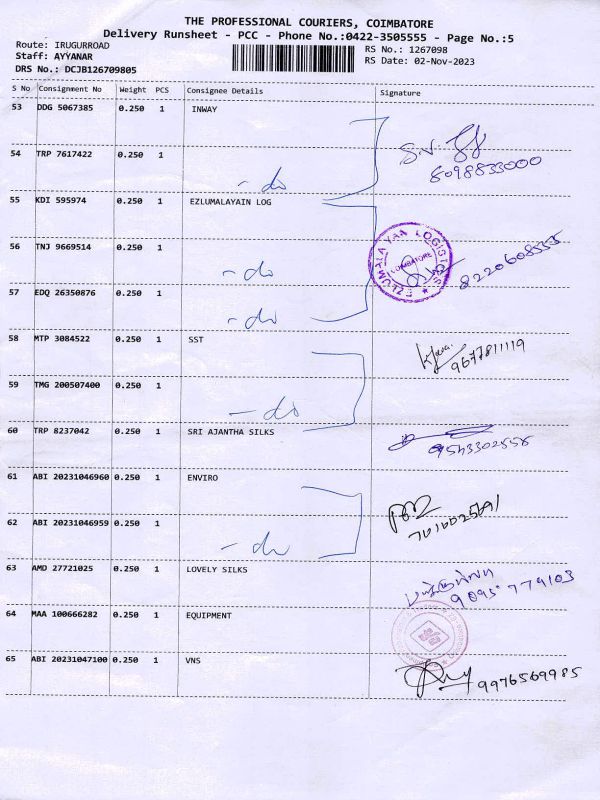 THE PROFESSIONAL COURIERS, COIMBATORE
Delivery Runsheet - PCC - Phone No.:0422-3505555 - Page No.:5
Route: IRUGURROAD RS No.: 1267098
Staff: AYYANAR RS Date: 02-Nov-2023
DRS No.: DCJB126709805
S No Consignment No Weight PCS Consignee Details Signature
53 DDG 5067385 0.250 1 INWAY
54 TRP 7617422 0.250 1 - do 8098833000
55 KDI 595974 0.250 1 EZLUMALAYAIN LOG
56 TNJ 9669514 0.250 1 - do EZLUMALAYAN LOGISTICS COIMBATORE 8220608555
57 EDQ 26350876 0.250 1 - do
58 MTP 3084522 0.250 1 SST 9677811119
59 TMG 200507400 0.250 1 - do
60 TRP 8237042 0.250 1 SRI AJANTHA SILKS 9543302556
61 ABI 20231046960 0.250 1 ENVIRO
62 ABI 20231046959 0.250 1 - do
63 AMD 27721025 0.250 1 LOVELY SILKS 9095 779103
64 MAA 100666282 0.250 1 EQUIPMENT
65 ABI 20231047100 0.250 1 VNS 9976569985